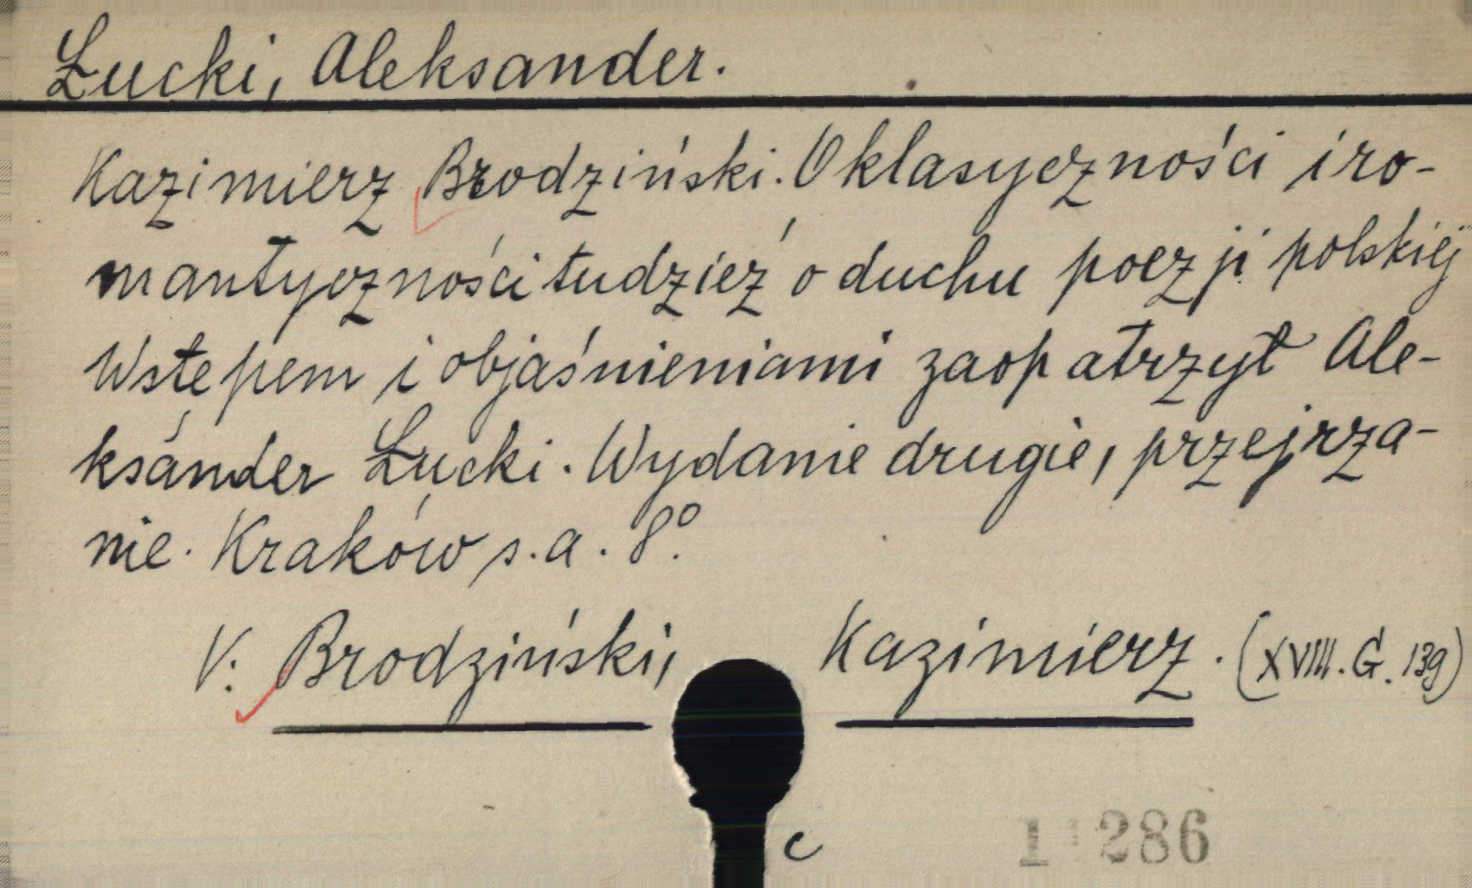 Łucki, Aleksander.
Kazimierz Brodziński. O klasyczności i ro-
mantyczności tudzież o duchu poezji polskiej
Wstępem i objaśnieniami zaopatrzył Ale-
ksander Łucki. Wydanie drugie, przejrza-
nie. Kraków s.a. 8°.
V. Brodziński, Kazimierz. (XVIII. G. 139)
c
1 286